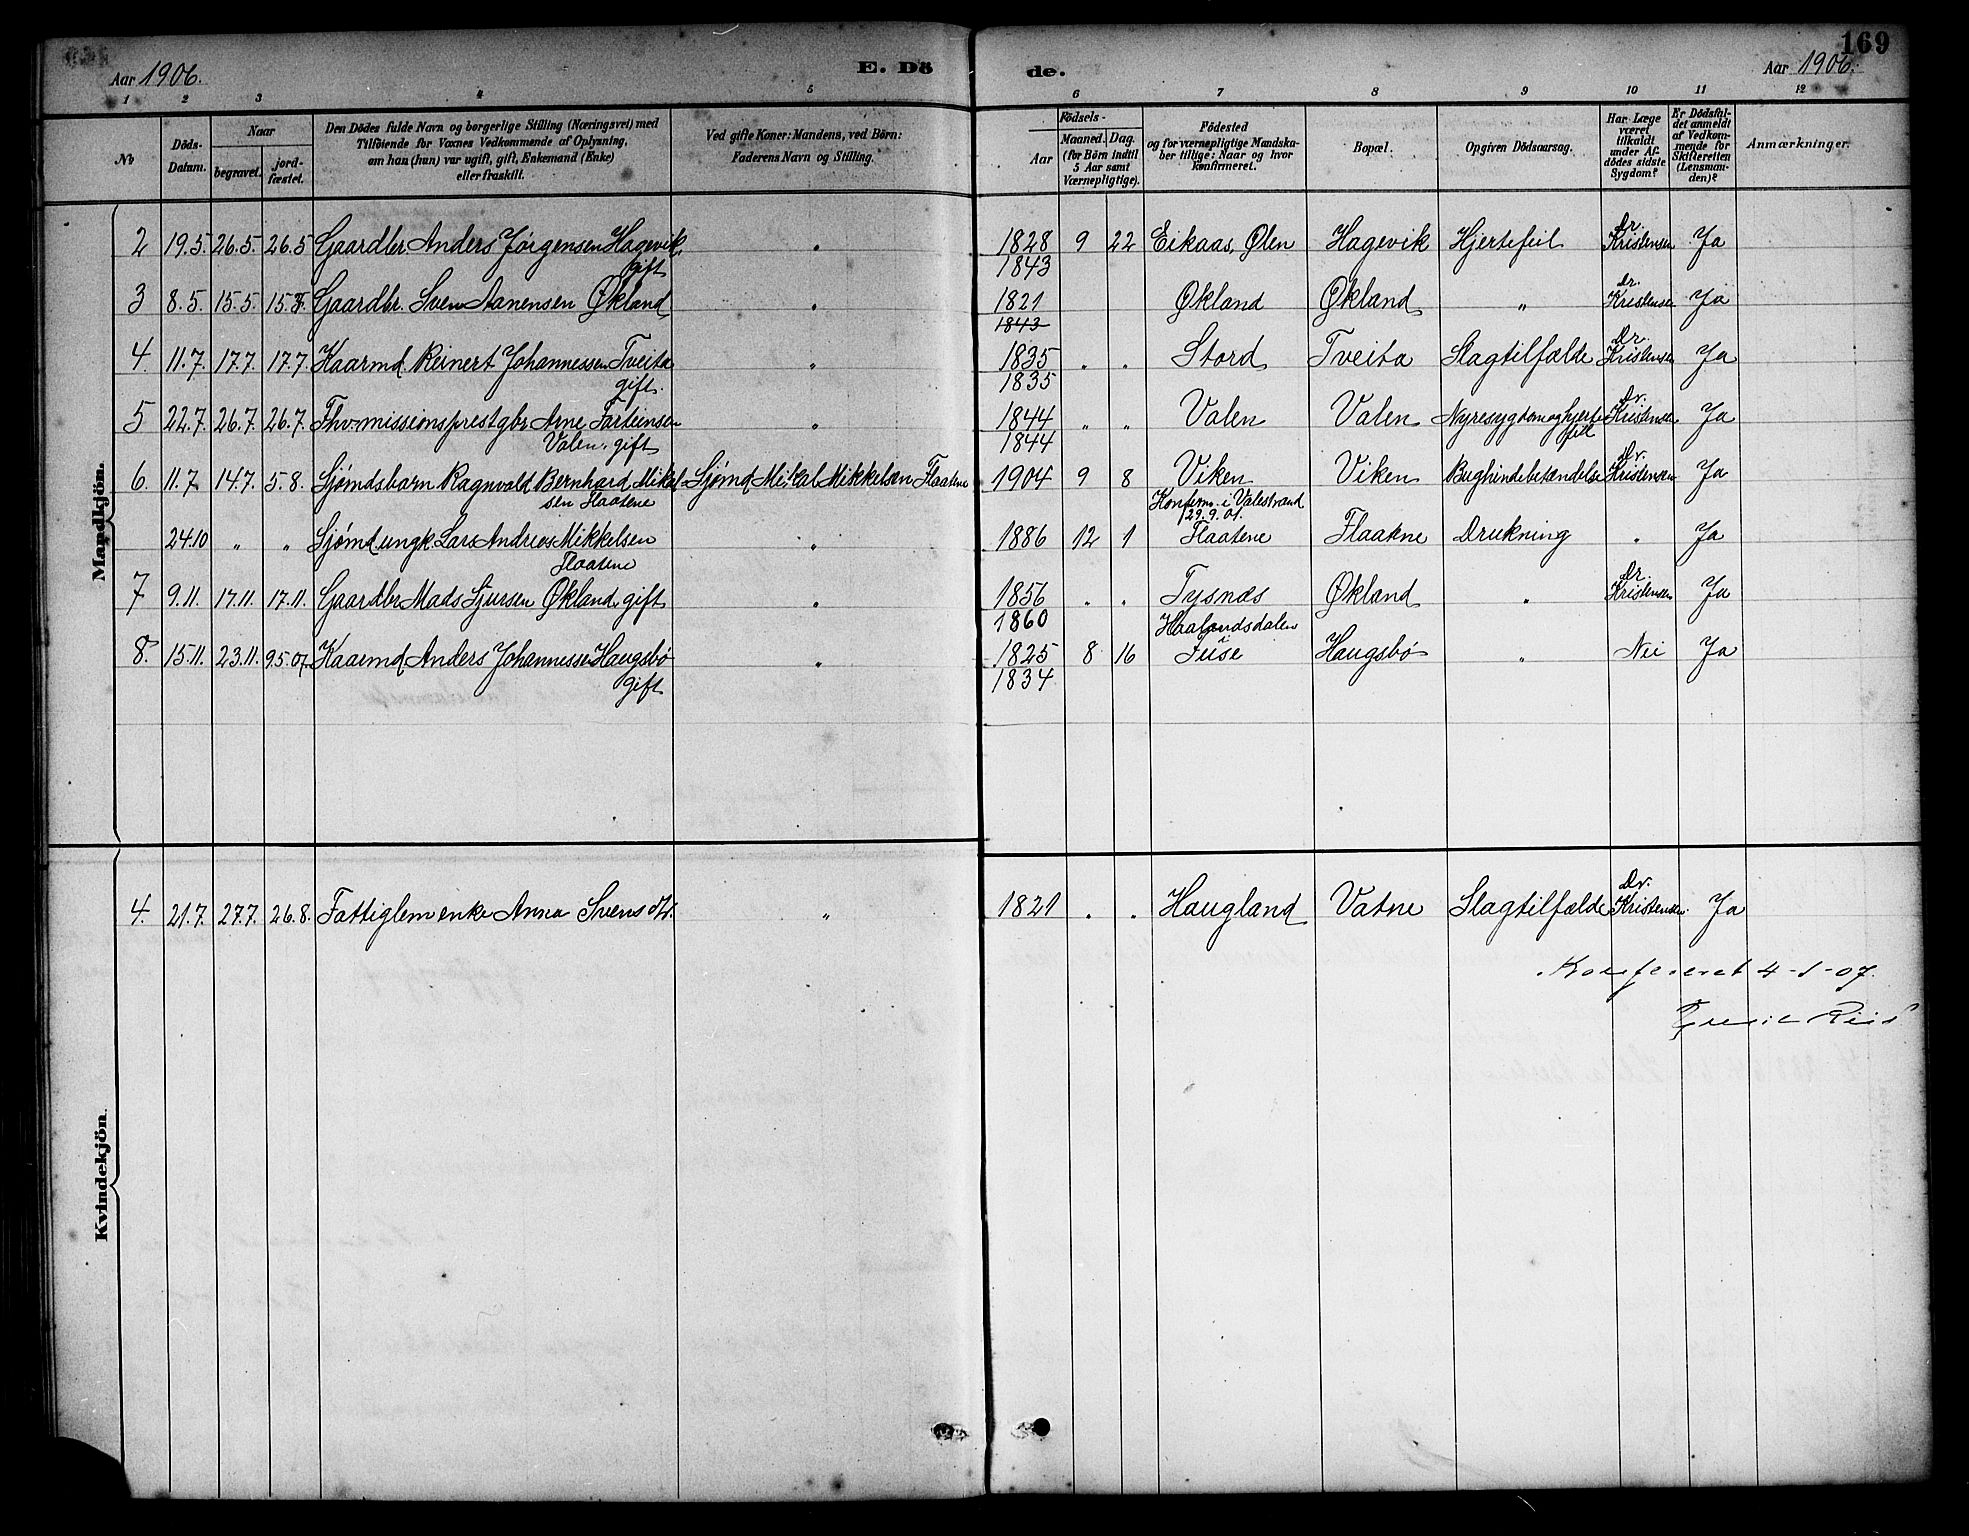 169
Aar 1906. E. Dö de. Aar 1906.
1 2 3 4 5 6 7 8 9 10 11 12
No
Döds-Datum.
Naar
begravet.
jord-fæstet.
Den Dödes fulde Navn og borgerlige Stilling (Næringsvei) med
Tilföiende for Voxnes Vedkommende af Oplysning,
om han (hun) var ugift, gift, Enkemand (Enke)
eller fraskilt.
Ved gifte Koner: Mandens, ved Börn:
Faderens Navn og Stilling.
Födsels-
Aar
Maaned. Dag.
(for Börn indtil
5 Aar samt
Værnepligtige).
Födested
og for værnepligtige Mandska-
ber tillige: Naar og hvor
konfirmeret.
Bopæl.
Opgiven Dödsaarsag.
Har Læge
været
tilkaldt
under Af-
dödes sidste
Sygdom?
Er Dödsfal-
det anmeldt
af Vedkom-
mende for
Skifteretten
(Lensman-
den)?
Anmærkninger.
Mandkjön.
2 19.5. 26.5. 26.5 Gaardbr. Anders Jørgensen Hagevik, gift " 1828 1843 9 22 Eikaas, Ølen Hagevik Hjertefeil Dr. Kristensen Ja
3 8.5. 15.5. 15.5. Gaardbr. Sven Aanensen Økland " 1821 1843 Økland Økland " Dr. Kristensen Ja
4. 11.7. 17.7. 17.7. Kaarmd. Reinert Johannessen Tveita gift. " 1835 1835 " " Stord Tveita Slagtilfælde Dr. Kristensen Ja
5 22.7. 26.7. 26.7. Fhv. missionsprest gbr Arne Torbeinsen Valen, gift " 1844 1844 " " Valen Valen Nyresygdom og hjertefeil Dr. Kristensen Ja
6. 11.7 14.7. 5.8. Sjømdsbarn Ragnvald Bernhard Mikalsen Flaatene Sjømd Mikal Mikkelsen Flaatene 1904 9 8 Viken Viken Bughindebetændelse Dr. Kristensen Ja
24.10 " " Sjømd ungk. Lars Andreas Mikkelsen Flaatene " 1886 12 1 Konferm. i Valestrand 29.9.01. Flaatene Flaatene Drukning " Ja
7 9.11. 17.11. 17.11. Gaardbr Mads Sjursen Økland, gift " 1856 1860 " " Tysnæs Økland " Dr. Kristensen Ja
8. 15.11. 23.11. 9.5.07. Kaarmd Anders Johannessen Haugsbø gift " 1825 1834 8 16 Haalandsdalen i Fuse Haugsbø " Nei Ja
Kvindekjön.
4. 21.7. 27.7. 26.8. Fattiglem enke Anna Svensdtr. " 1821 " " Haugland Vatne Slagtilfælde Dr. Kristensen. Ja
Konfereret 4-1-07.